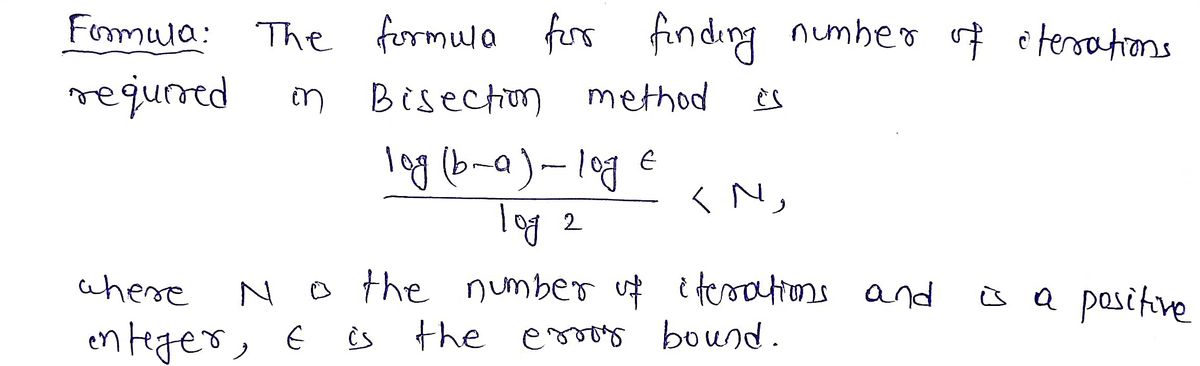 Formula: The formula for finding number of iterations
required in Bisection method is
log (b-a) - log ϵ
log 2
< N,
where N is the number of iterations and is a positive
integer, ϵ is the error bound.